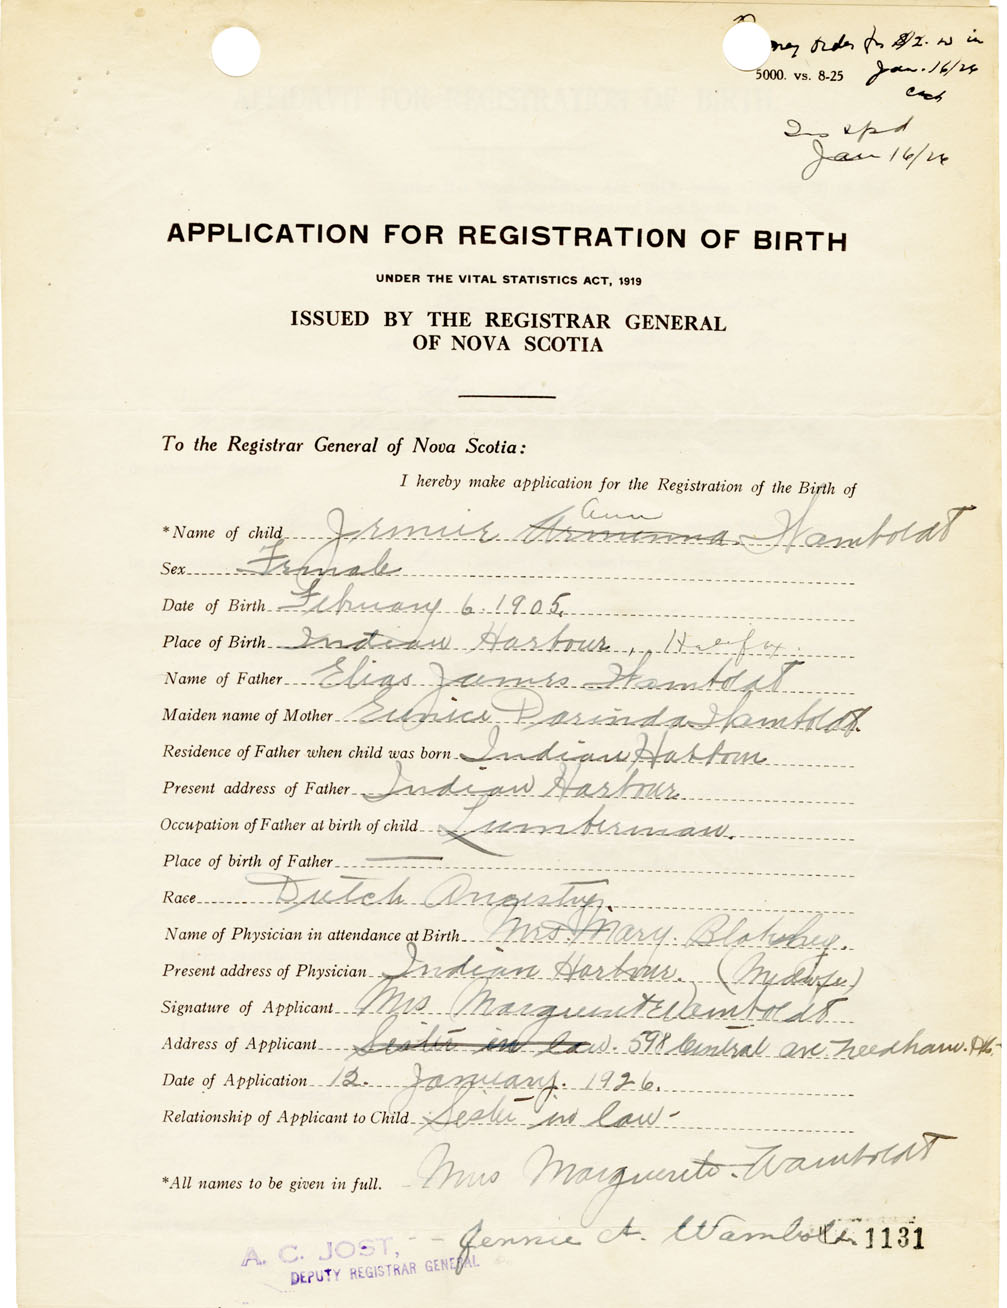 Money order for $2.00 in
5000. vs. 8-25 Jan. 16/26
Ins spd
Jan 16/26
APPLICATION FOR REGISTRATION OF BIRTH
UNDER THE VITAL STATISTICS ACT, 1919
ISSUED BY THE REGISTRAR GENERAL
OF NOVA SCOTIA
To the Registrar General of Nova Scotia:
I hereby make application for the Registration of the Birth of
Ann
*Name of child Jennie Armenna Wamboldt
Sex Female
Date of Birth February 6. 1905.
Place of Birth Indian Harbour, Halifax.
Name of Father Elias James Wamboldt
Maiden name of Mother Eunice Dorinda Wamboldt.
Residence of Father when child was born Indian Harbour
Present address of Father Indian Harbour
Occupation of Father at birth of child Lumberman.
Place of birth of Father —
Race Dutch Ancestry.
Name of Physician in attendance at Birth Mrs Mary
Present address of Physician Indian Harbour. (Midwife)
Signature of Applicant Mrs Marguerite Wamboldt
Address of Applicant Sister in law. 598 Central ave. Needham.
Date of Application 12. January. 1926.
Relationship of Applicant to Child Sister in law-
*All names to be given in full. Mrs Marguerite Wamboldt
Jennie A. Wamboldt 1131
A. C. JOST,
DEPUTY REGISTRAR GENERAL